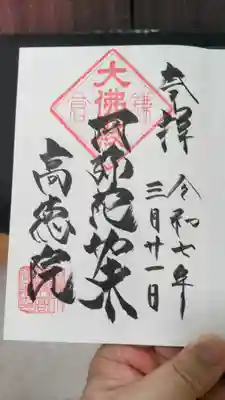 奉拝
令和七年
三月廿一日
大佛殿
阿弥陀如来
高徳院